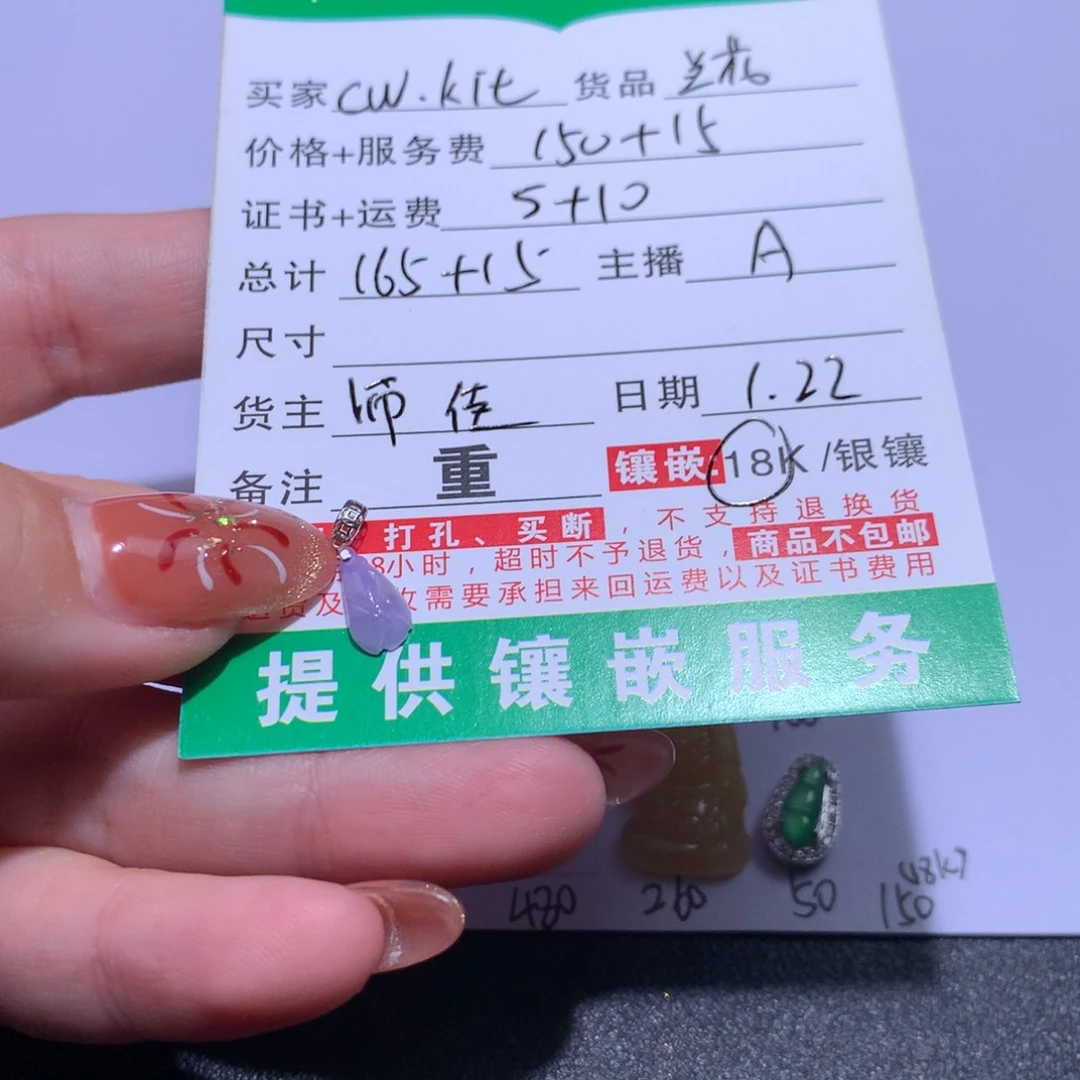 买家 CW.kit 货品
价格+服务费 150+15
证书+运费 5+10
总计 165+15 主播 A
尺寸
货主 师 日期 1.22
备注 重 镶嵌:18K/银镶
打孔、买断，不支持退换货
8小时，超时不予退货，商品不包邮
及 需要承担来回运费以及证书费用
提供镶嵌服务
480 260 50 150 (18K)